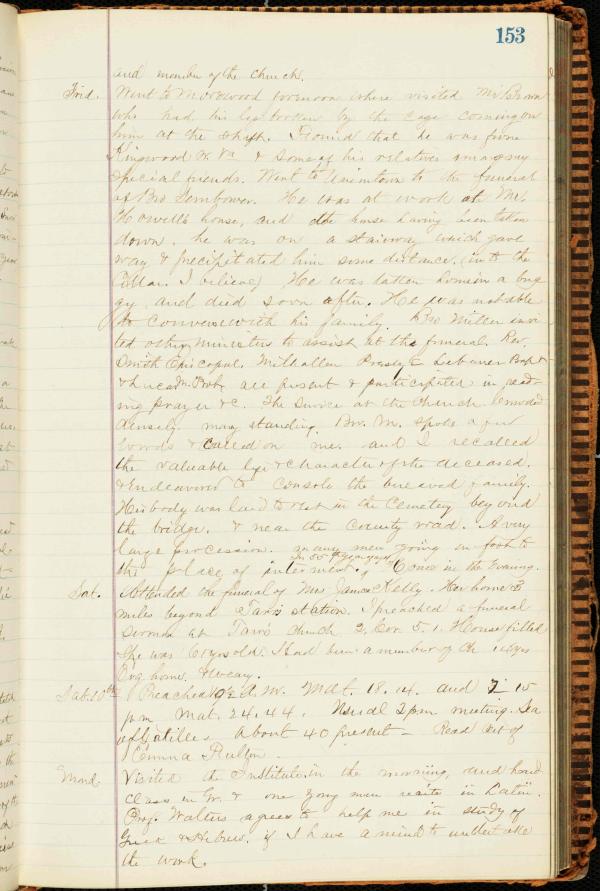 153
and member of the church.
Frid. Went to Moorwood forenoon where visited Mr Brown
who had his leg broken by the cage coming on
him at the shaft. Found that he was from
Kingwood W. Va & some of his relatives are my
special friends. Went to Uniontown to the funeral
of Bro
He was at work at Mr.
Howells house, and the house having been taken
down. he was on a stairway which gave
way & precipitated him some distance. (into the
Cellar. I believe) He was taken home in a bug
gy and died soon after. He was not able
to converse with his family. Bro Miller invi
ted other ministers to assist at the funeral Rev.
Smith Episcopal. Presby
are present & participated in read-
ing prayer &c. The service at the Church Crowded
densely many standing. Bro. M. spoke a few
words & called on me. and I recalled
the valuable life & character of the deceased.
& Endeavored to console the bereaved family.
His body was laid to rest in the Cemetery beyond
the bridge. & near the county road. A very
large procession. many men going on foot to
in 55th year of age
the place of interment. Came in the Evening.
Sat. Attended the funeral of Mrs James Kelly. Her home 3
miles beyond Tarrs station. I preached a funeral
sermon at Tarrs Church 2. Cor. 5. 1. House filled
She was yrs old. Had been a member of Ch yrs
home. Weary.
Sab. 10th Preached 10½ A. M. Mat. 18. 14. and 7 15
p m Mat. 24. 44. Usual 2 pm meeting.
About 40 present -
Emma
Mond. Visited the Institute in the morning, and heard
Class in Gr. & one young man recite in Latin.
Prof. Walters agrees to help me in study of
Greek & Hebrew. if I have a mind to undertake
the work.